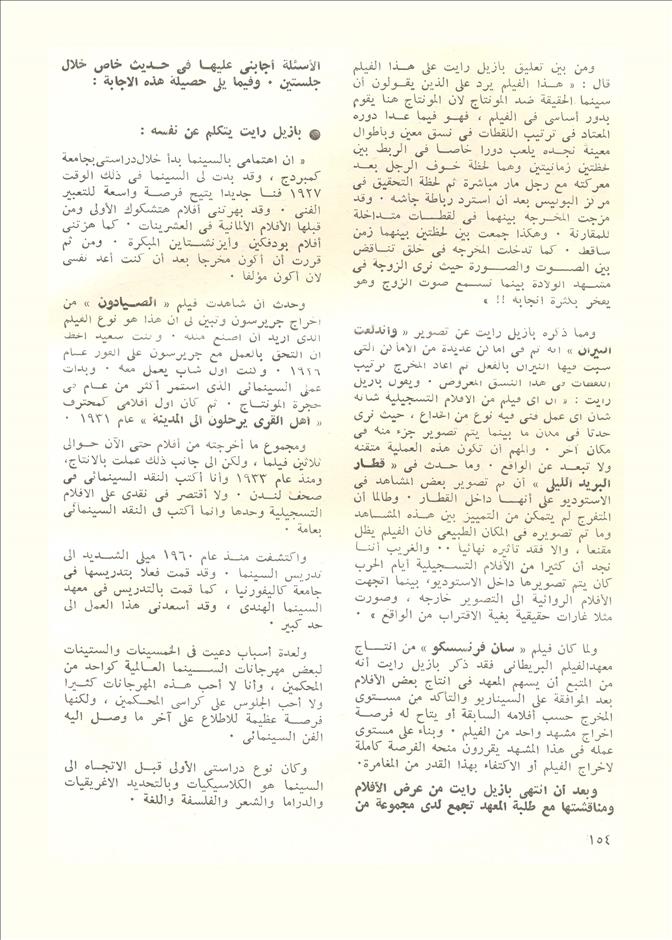 ومن بين تعليق بازيل رايت على هذا الفيلم
قال : « هذا الفيلم يرد على الذين يقولون أن
سينما الحقيقة ضد المونتاج لأن المونتاج هنا يقوم
بدور أساسى فى الفيلم ، فهو فيما عدا دوره
المعتاد فى ترتيب اللقطات فى نسق معين وباطوال
معينة نجده يلعب دورا خاصا فى الربط بين
لحظتين زمانيتين وهما لحظة خوف الرجل بعد
معركته مع رجل مار مباشرة ثم لحظة التحقيق فى
مركز البوليس بعد أن استرد رباطة جأشه . وقد
مزجت المخرجه بينهما فى لقطات متداخلة
للمقارنة . وهكذا جمعت بين لحظتين بينهما زمن
ساقط . كما تدخلت المخرجه فى خلق تناقض
بين الصوت والصورة حيث نرى الزوجة فى
مشهد الولادة بينما نسمع صوت الزوج وهو
يفخر بكثرة انجابه !! »
ومما ذكره بازيل رايت عن تصوير « واندلعت
النيران » أنه تم فى أماكن عديدة من الأماكن التى
شبت فيها النيران بالفعل ثم أعاد المخرج ترتيب
اللقطات فى هذا النسق المعروض . ويقول بازيل
رايت : « أن أى فيلم من الافلام التسجيلية شأنه
شأن أى عمل فنى فيه نوع من الخداع ، حيث نرى
حدثا فى مكان ما بينما يتم تصوير جزء منه فى
مكان آخر . والمهم أن تكون هذه العملية متقنه
ولا تبعد عن الواقع . وما حدث فى « قطار
البريد الليلى » أن تم تصوير بعض المشاهد فى
الاستوديو على أنها داخل القطار . وطالما أن
المتفرج لم يتمكن من التمييز بين هذه المشاهد
وما تم تصويره فى المكان الطبيعى فان الفيلم يظل
مقنعا ، والا فقد تأثيره نهائيا .. والغريب أننا
نجد أن كثيرا من الأفلام التسجيلية أيام الحرب
كان يتم تصويرها داخل الاستوديو، بينما اتجهت
الأفلام الروائية الى التصوير خارجه ، وصورت
مثلا غارات حقيقية بغية الاقتراب من الواقع » .
ولما كان فيلم « سان فرنسسكو » من انتاج
معهدالفيلم البريطانى فقد ذكر بازيل رايت أنه
من المتبع أن يسهم المعهد فى انتاج بعض الأفلام
بعد الموافقة على السيناريو والتأكد من مستوى
المخرج حسب أفلامه السابقة أو يتاح له فرصة
اخراج مشهد واحد من الفيلم . وبناء على مستوى
عمله فى هذا المشهد يقررون منحه الفرصة كاملة
لاخراج الفيلم أو الاكتفاء بهذا القدر من المغامرة.
وبعد أن انتهى بازيل رايت من عرض الأفلام
ومناقشتها مع طلبة المعهد تجمع لدى مجموعة من
الأسئلة أجابنى عليها فى حديث خاص خلال
جلستين . وفيما يلى حصيلة هذه الاجابة :
● بازيل رايت يتكلم عن نفسه :
« ان اهتمامى بالسينما بدأ خلال دراستى بجامعة
كمبردج ، وقد بدت لى السينما فى ذلك الوقت
١٩٢٧ فنا جديدا يتيح فرصة واسعة للتعبير
الفنى . وقد بهرتنى أفلام هتشكوك الأولى ومن
قبلها الأفلام الألمانية فى العشرينات . كما هزتنى
أفلام بودفكين وايزنشتاين المبكرة . ومن ثم
قررت أن أكون مخرجا بعد أن كنت أعد نفسى
لان أكون مؤلفا .
وحدث ان شاهدت فيلم « الصيادون » من
اخراج جريرسون وتبين لى ان هذا هو نوع الفيلم
الذى أريد أن أصنع مثله . وكنت سعيد الحظ
ان التحق بالعمل مع جريرسون على الفور عام
١٩٢٩ . وكنت أول شاب يعمل معه . وبدأت
عملى السينمائى الذى استمر أكثر من عام فى
حجرة المونتاج . ثم كان أول أفلامى كمحترف
« أهل القرى يرحلون الى المدينة » عام ١٩٣١ .
ومجموع ما أخرجته من أفلام حتى الآن حوالى
ثلاثين فيلما ، ولكن الى جانب ذلك عملت بالانتاج،
ومنذ عام ١٩٣٣ وأنا أكتب النقد السينمائى فى
صحف لندن . ولا أقتصر فى نقدى على الافلام
التسجيلية وحدها وانما أكتب فى النقد السينمائى
بعامة .
واكتشفت منذ عام ١٩٦٠ ميلى الشديد الى
تدريس السينما . وقد قمت فعلا بتدريسها فى
جامعة كاليفورنيا ، كما قمت بالتدريس فى معهد
السينما الهندى ، وقد أسعدنى هذا العمل الى
حد كبير .
ولعدة أسباب دعيت فى الخمسينات والستينات
لبعض مهرجانات السينما العالمية كواحد من
المحكمين ، وأنا لا أحب هذه المهرجانات كثيرا
ولا أحب الجلوس على كراسى المحكمين ، ولكنها
فرصة عظيمة للاطلاع على آخر ما وصل اليه
الفن السينمائى .
وكان نوع دراستى الأولى قبل الاتجاه الى
السينما هو الكلاسيكيات وبالتحديد الاغريقيات
والدراما والشعر والفلسفة واللغة .
١٥٤